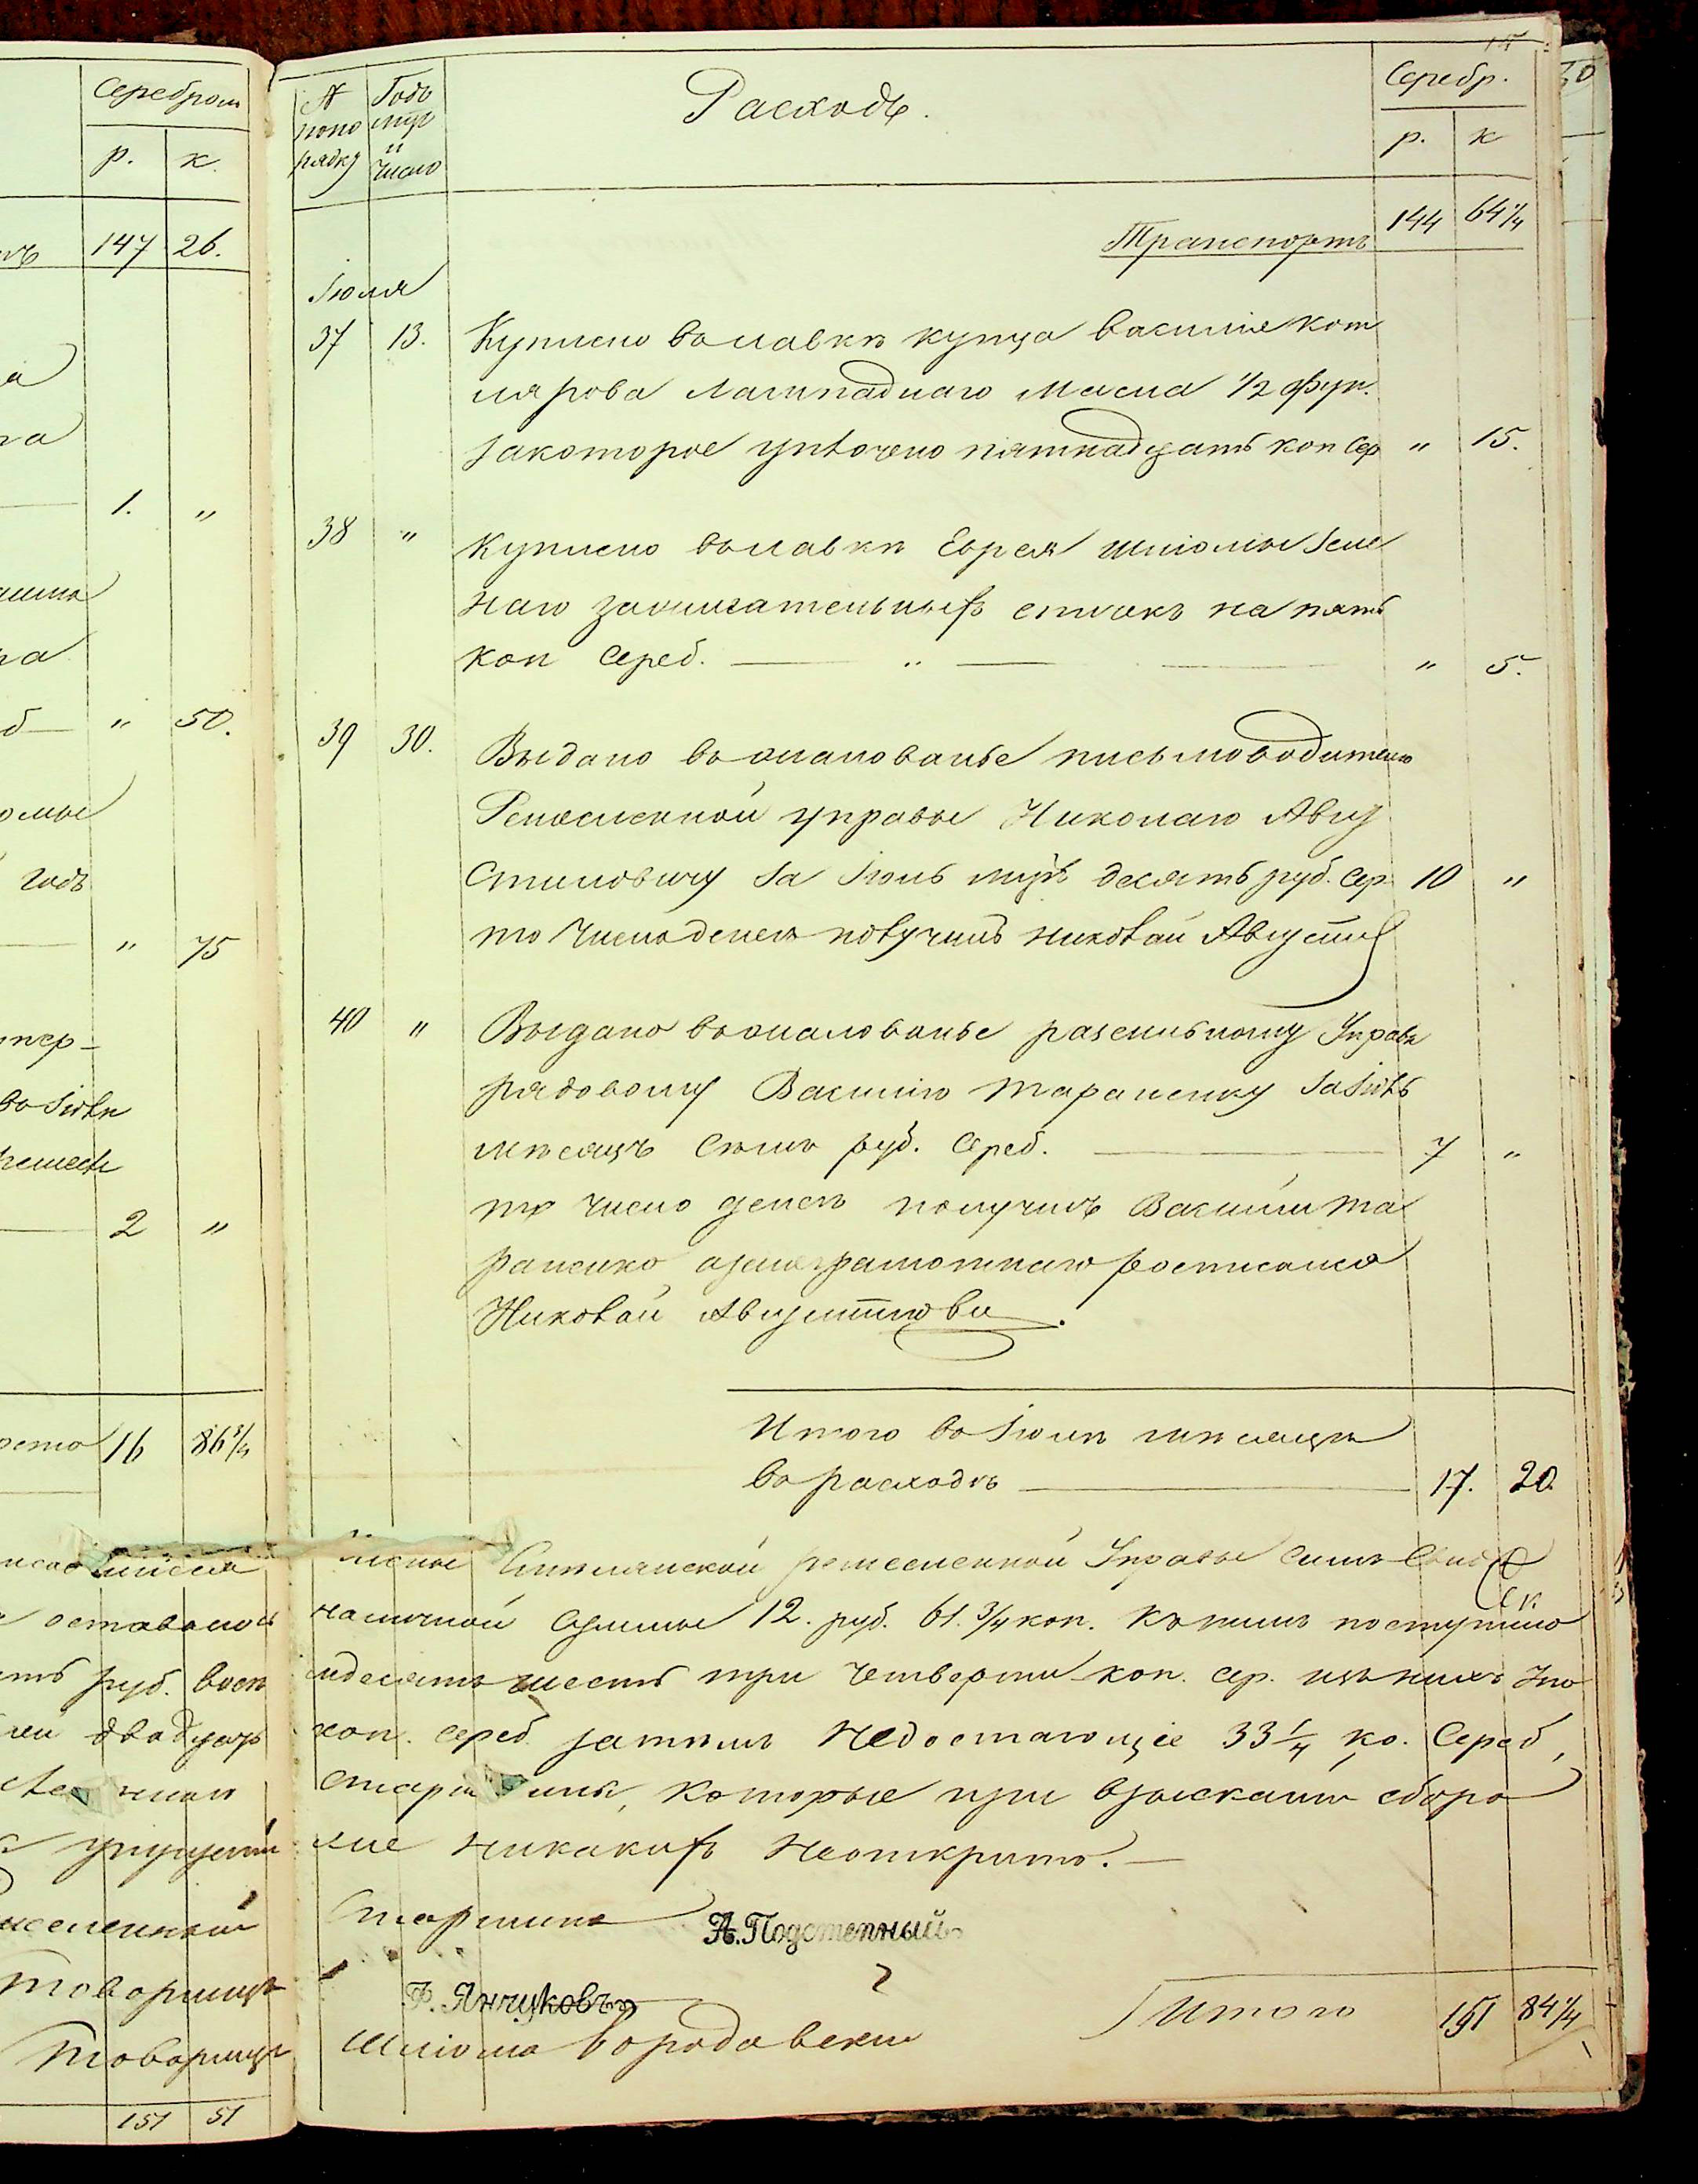 Серебром
р. к.
147 26.
1. "
" 50.
" 75
годъ
2 "
16 86 3/4
оставалось
руб. восем
двадцать
Товарищъ
Товарищъ
151 51
№ попо рядку
Годъ мцъ и число
Расходъ.
Серебр.
р. к
Транспортъ 144 64 1/4
Іюля
37 13. Куплено волавкѣ купца Василія Кот
лярова Лампаднаго Масла 1/2 фун.
закоторое уплочено пятнадцать коп Сер " 15.
38 " Куплено волавки Еврея Шліомы Зеле
наго зажигательныхъ спичокъ на пять
коп Сереб. " 5.
39 30. Выдано вжалованье письмоводителю
Ремесленной управы Николаю Авгу
стиновичу за Іюль мцъ десять руб. Сер. 10 "
то Число денегъ получилъ николай Августин
40 " Выдано вжалованье разсильному Управы
рядовому Василію Тараненку за Іюль
мѣсяцъ Семь руб. Сереб. 7 "
то число денегъ получилъ Василій Та
раненко, азанеграмотнаго росписался
Николай Августинови.
Итого во Іюлѣ мѣсяцѣ
во расходѣ 17. 20.
ремесленной Управы симъ Свид
наличной Суммы 12. руб. 61. 3/4 коп. Къ нимъ поступило
мдесять шесть три Четверти коп. сер. изъ нихъ Упо
коп. сереб затѣмъ Недостающіе 33 1/4 ко. Сереб,
которые при взысканіи сбора
ніе никакихъ Неоткрыто.
Старшина А. Подстепный
Ф. Янчуковъ
Шліома Бородавски
Итого 161 84 1/4